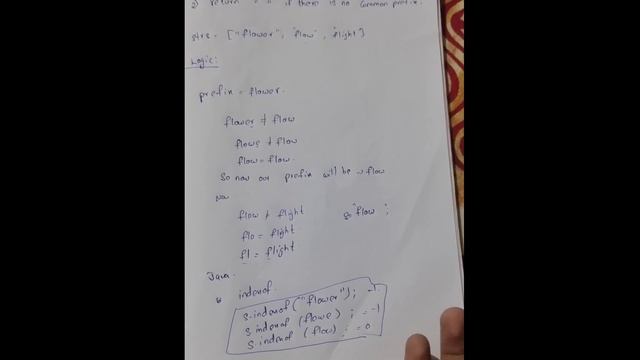 2) return " " if there is no Common prefix.
strs = ["flower", "flow", "flight"]
Logic:
prefix = flower.
flower ≠ flow
flowe ≠ flow
flow = flow.
So now our prefix will be → flow
Now
flow ≠ flight so "flow" ;
flo = flight
fl = flight
Java.
indexof.
s.indexof("flower"); = -1
s.indexof (flowe) ; = -1
s.indexof (flow) ; = 0